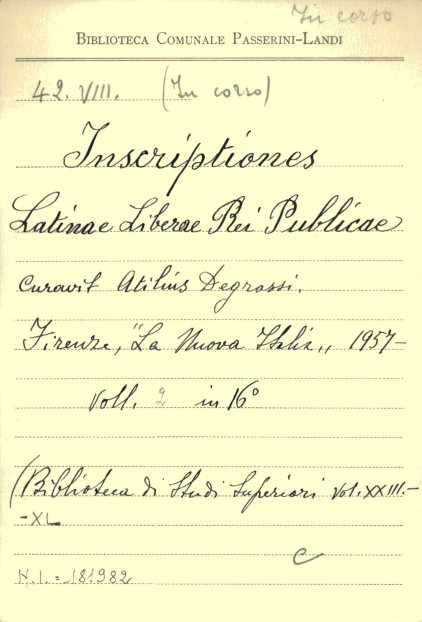 In corso
BIBLIOTECA COMUNALE PASSERINI-LANDI
42. VIII. (In corso)
Inscriptiones
Latinae Liberae Rei Publicae
curavit Atilius Degrassi.
Firenze, "La Nuova Italia„ 1957-
Voll. 2 in 16°
(Biblioteca di Studi Superiori Vol. XXIII.-
-XL
C
N.I. = 181982